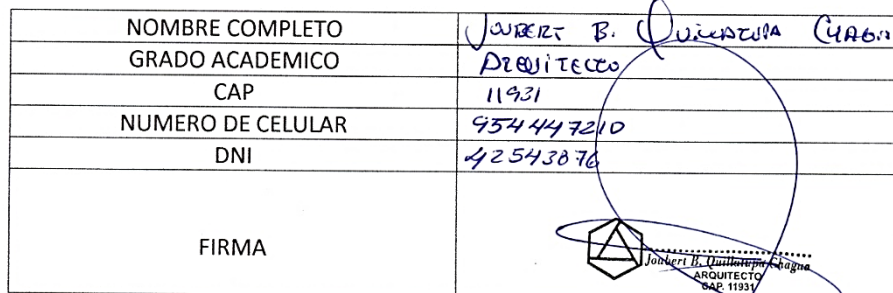 NOMBRE COMPLETO JOUBERT B. QUILLATUPA CHAGUA
GRADO ACADEMICO ARQUITECTO
CAP 11931
NUMERO DE CELULAR 954447210
DNI 42543876
FIRMA
Joubert B. Quillatupa Chagua
ARQUITECTO
CAP. 11931